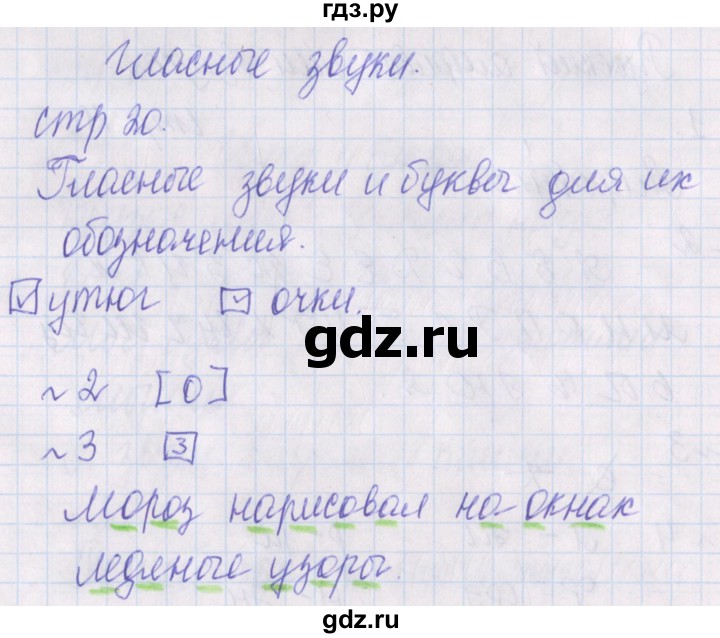 гдз.ру
Гласные звуки.
стр 20.
Гласные звуки и буквы для их
обозначения.
утюг очки.
gdz.ru
~2 [О]
~3 3
Мороз нарисовал на окнах
ледяные узоры.
gdz.ru